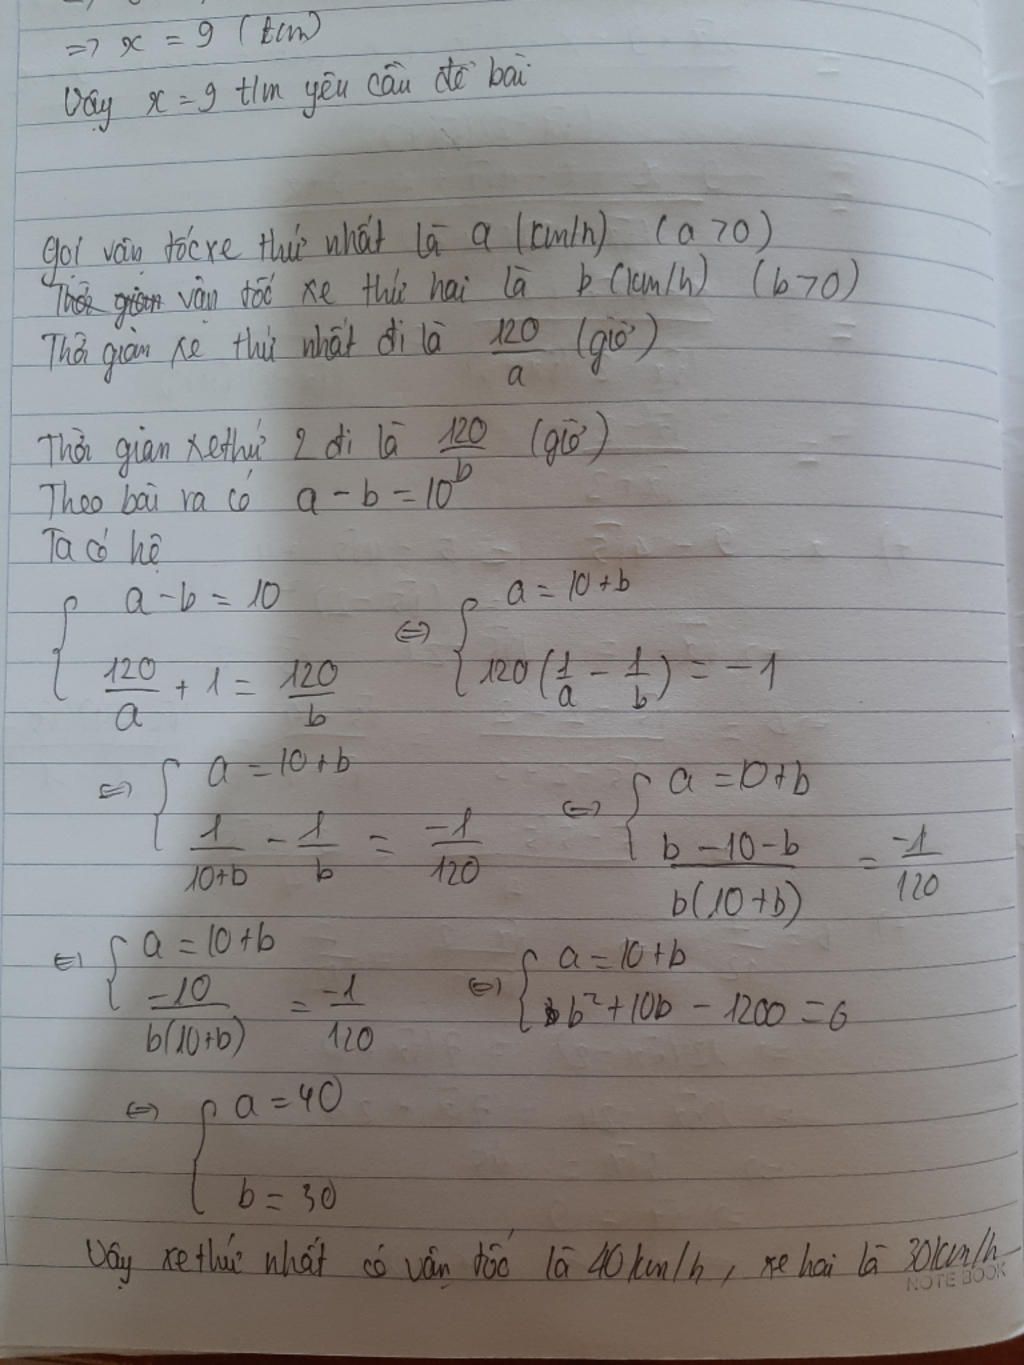 => x = 9 (tm)
Vậy x = 9 t/m yêu cầu đề bài
gọi vận tốc xe thứ nhất là a (km/h) (a > 0)
Thời gian vận tốc xe thứ hai là b (km/h) (b > 0)
Thời gian xe thứ nhất đi là 120/a (giờ)
Thời gian xe thứ 2 đi là 120/b (giờ)
Theo bài ra có a - b = 10
Ta có hệ
{ a - b = 10 <=> { a = 10 + b
120/a + 1 = 120/b 120(1/a - 1/b) = -1
<=> { a = 10 + b <=> { a = 10 + b
1/(10+b) - 1/b = -1/120 (b - 10 - b)/(b(10+b)) = -1/120
<=> { a = 10 + b <=> { a = 10 + b
-10/(b(10+b)) = -1/120 b² + 10b - 1200 = 0
<=> { a = 40
b = 30
Vậy xe thứ nhất có vận tốc là 40km/h, xe hai là 30km/h
NOTE BOOK